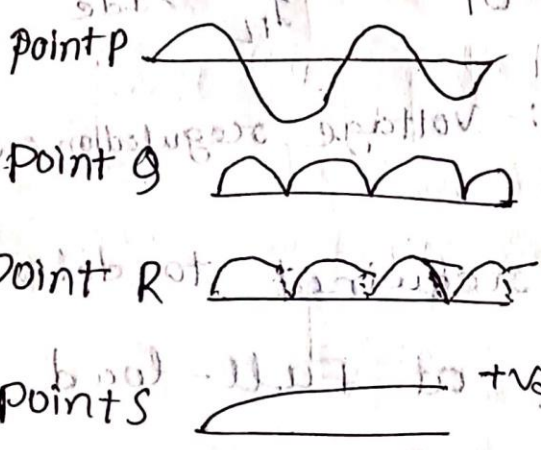 point P
point Q
point R
point S +ve